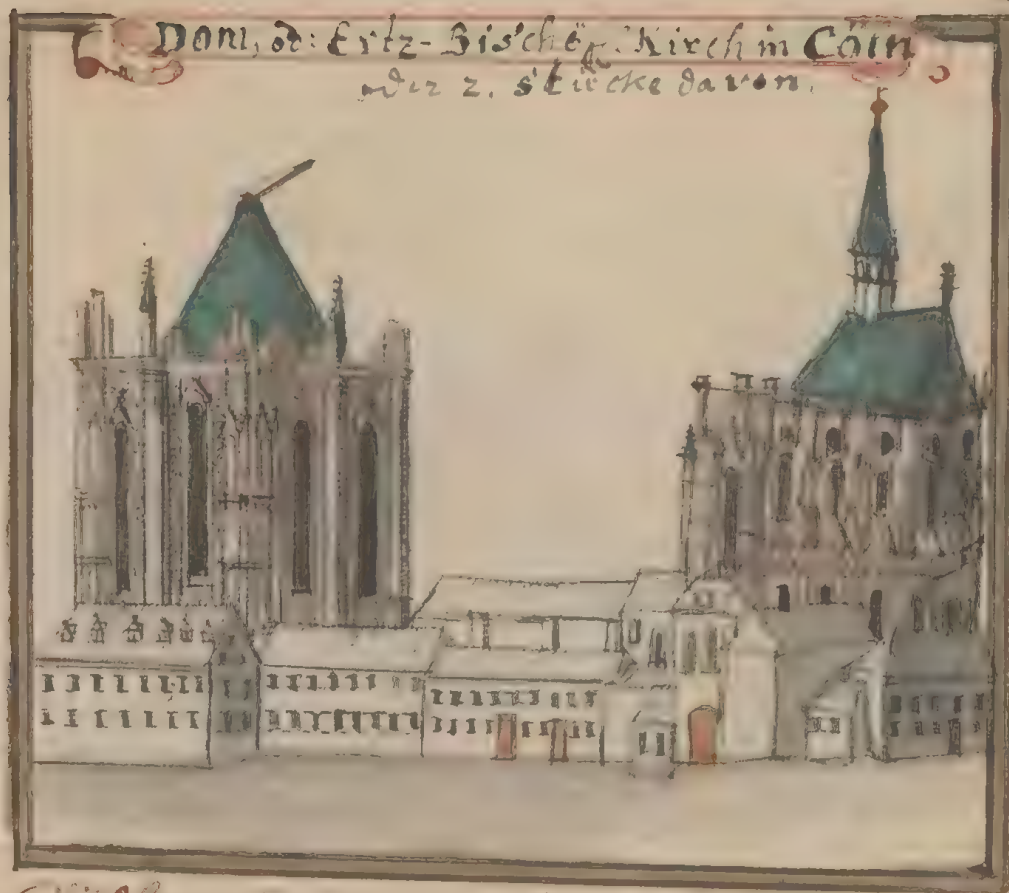 Dom, od: Ertz-Bischöfl. Kirch in Cöln
oder 2. stücke davon.